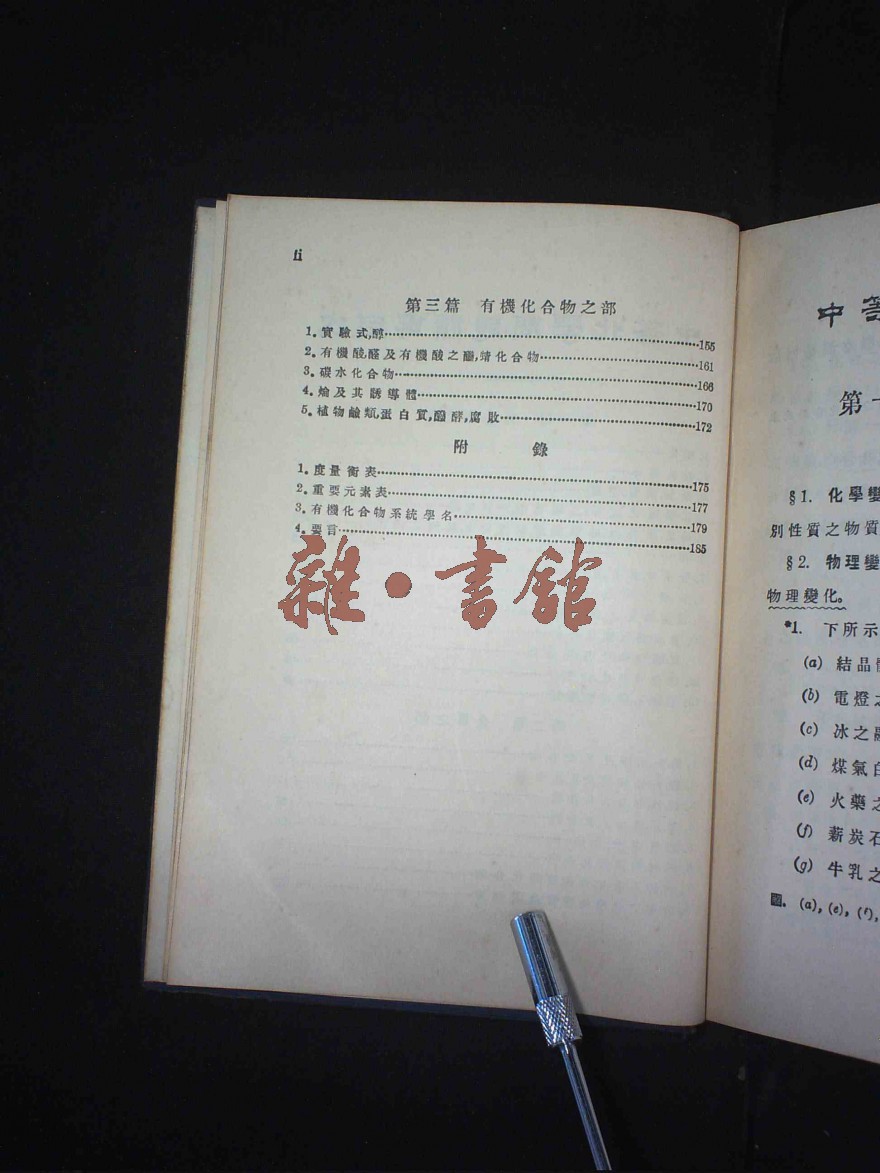 ii
第三篇 有機化合物之部
1. 實驗式,醇……155
2. 有機酸醛及有機酸之鹽,鯖化合物……161
3. 碳水化合物……166
4. 爚及其誘導體……170
5. 植物鹼類,蛋白質,醱酵,腐敗……172
附 錄
1. 度量衡表……175
2. 重要元素表……177
3. 有機化合物系統學名……179
4. 要言……185
雜·書館
中等
第一
§1. 化學變
別性質之物質
§2. 物理變
物理變化。
*1. 下所示
(a) 結晶
(b) 電燈之
(c) 冰之
(d) 煤氣
(e) 火藥之
(f) 薪炭石
(g) 牛乳之
(a), (e), (f),